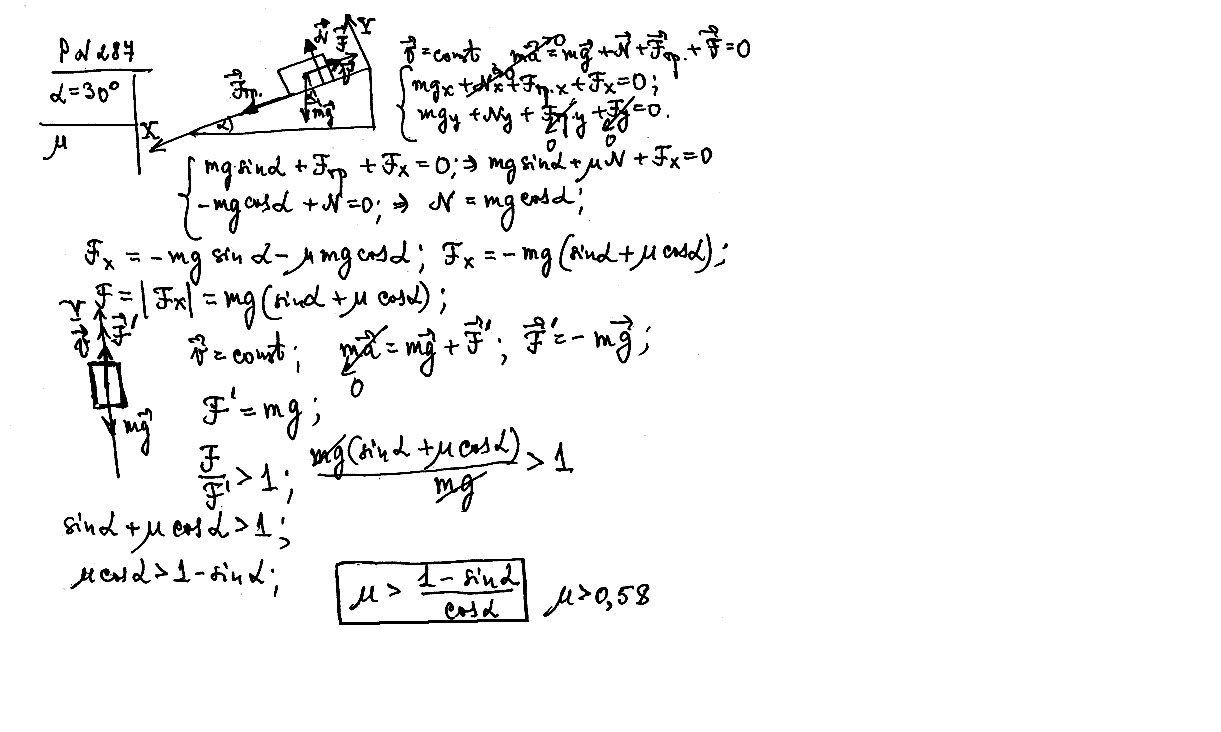 P N 287
α=30°
μ
X Y N⃗ F⃗ v⃗ F⃗тр. mg⃗ α
v⃗=const ma⃗→0=mg⃗+N⃗+F⃗тр.+F⃗=0
mgx+Nx→0+Fтр.x+Fx=0;
mgy+Ny+Fтр.y→0+Fy→0=0.
mg sinα+Fтр+Fx=0;⇒ mg sinα+μN+Fx=0
-mg cosα+N=0;⇒ N=mg cosα;
Fx=-mg sinα-μmg cosα; Fx=-mg(sinα+μcosα);
F=|Fx|=mg(sinα+μ cosα);
Y v⃗ F⃗' mg⃗
v⃗=const; ma⃗→0=mg⃗+F⃗'; F⃗'=-mg⃗;
F'=mg;
F/F'>1; mg(sinα+μcosα)/mg>1
sinα+μcosα>1;
μcosα>1-sinα;
μ> (1-sinα)/cosα μ>0,58